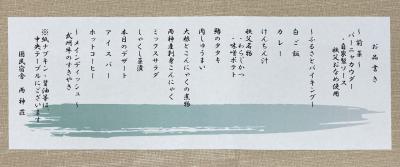 お品書き
～前菜～
バーニャカウダー
・自家製ソース
秩父おなめ使用
～ふるさとバイキング～
白ご飯
カレー
けんちん汁
秩父名物
・わらじかつ
・味噌ポテト
鰹のタタキ
肉しゅうまい
大根とこんにゃくの煮物
両神産刺身こんにゃく
ミックスサラダ
しゃくし菜漬
本日のデザート
アイスバー
ホットコーヒー
～メインディッシュ～
武州豚のすきやき
※紙ナプキン・醤油等は、
中央テーブルにございます
国民宿舎 両神荘